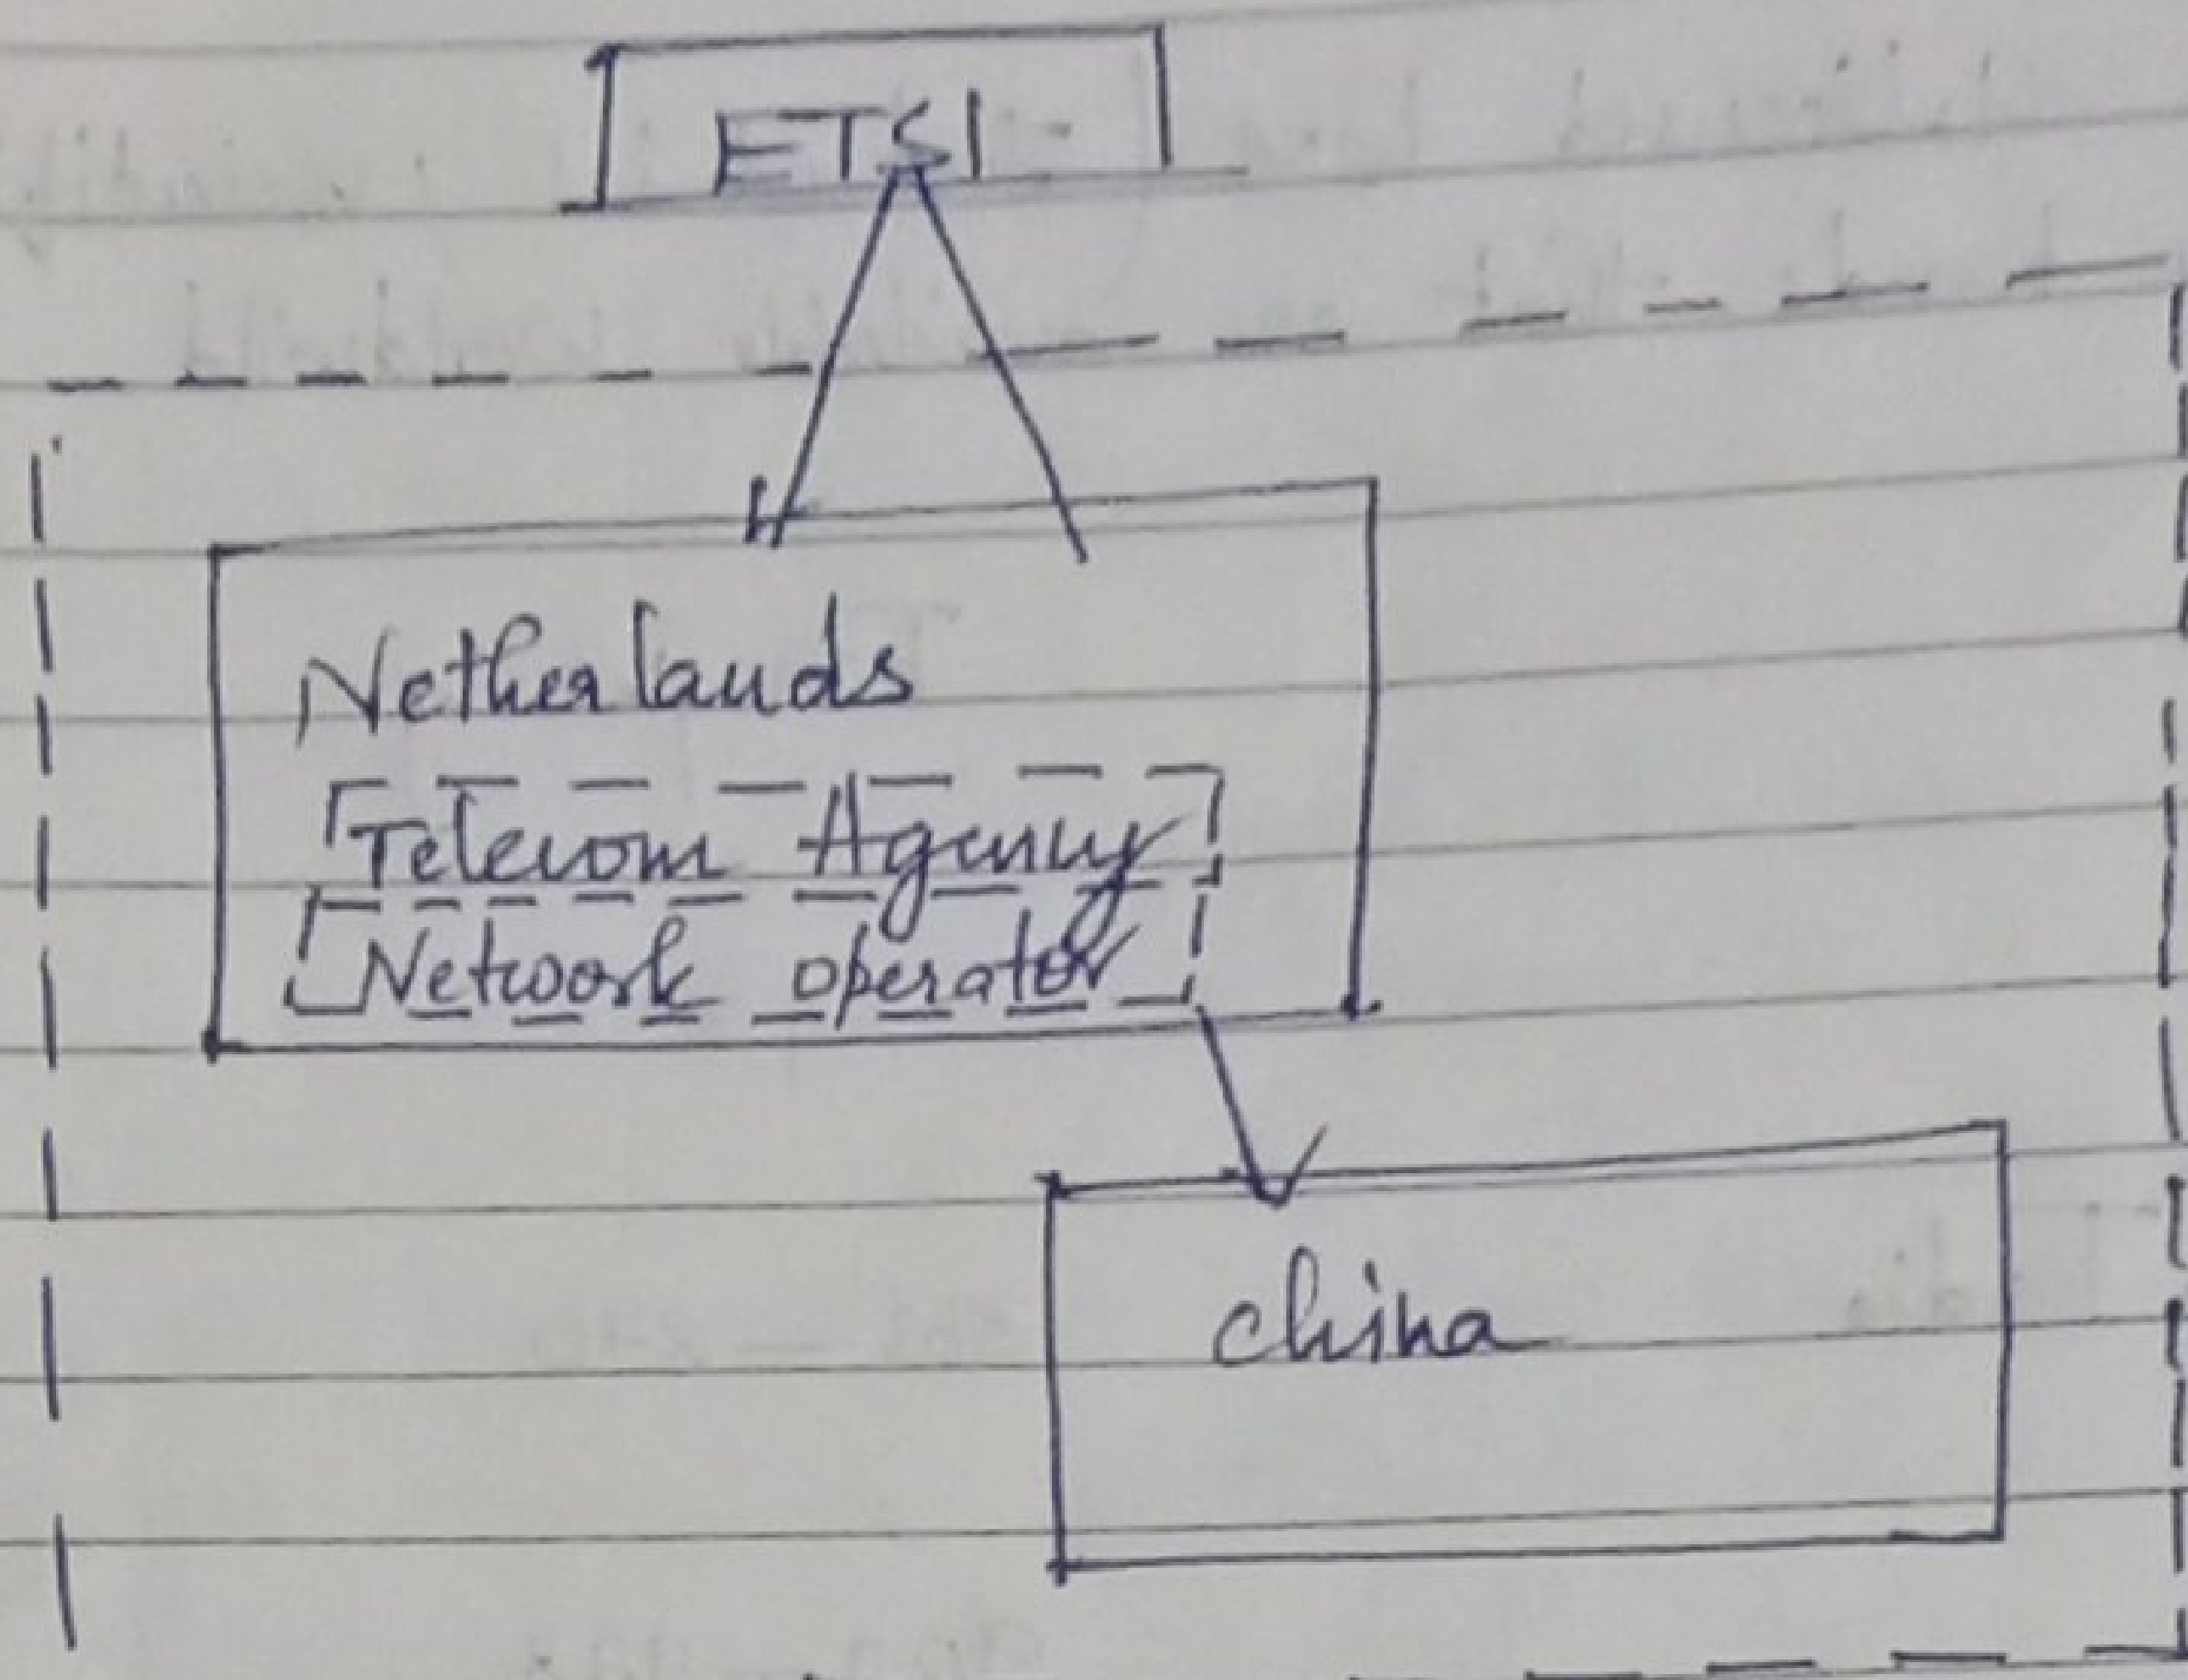 ETSI
Netherlands
Telecom Agency
Network operator
china